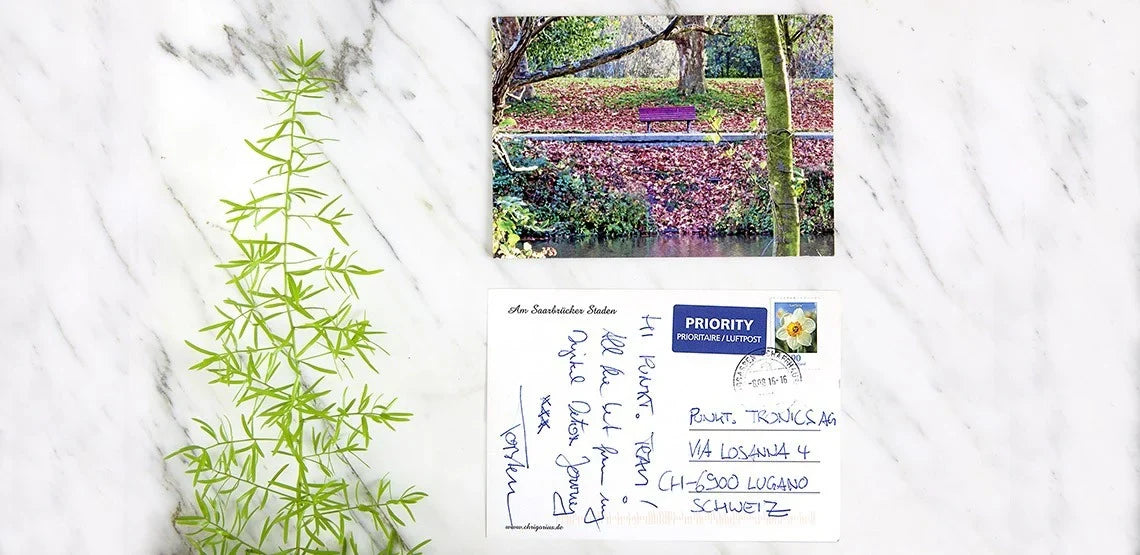 Am Saarbrücker Staden
Hi PUNKT. TEAM!
All the best from my
Digital Detox Journey
xxx
Torsten
PRIORITY
PRIORITAIRE / LUFTPOST
-8.08 16-16
PUNKT. TRONICS AG
VIA LOSANNA 4
CH-6900 LUGANO
SCHWEIZ
www.chrigorius.de